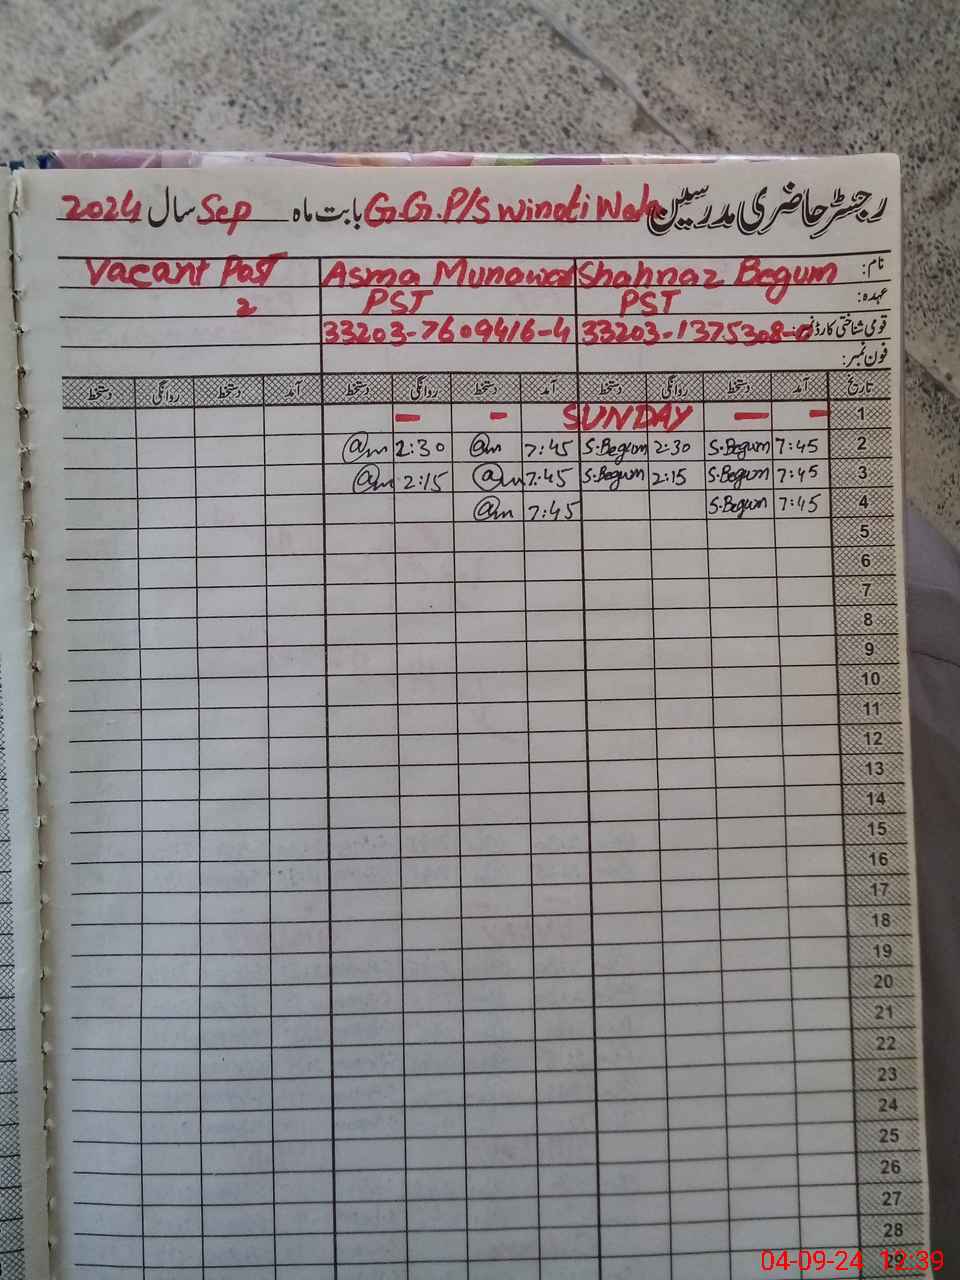 رجسٹر حاضری مدرسین G.G.P/S Winoti Wala بابت ماہ Sep سال 2024
نام: Shahnaz Begum Asma Munawar Vacant Post
عہدہ: PST PST 2
قومی شناختی کارڈ نمبر: 33203-1375308- 33203-7609416-4
فون نمبر:
تاریخ آمد دستخط روانگی دستخط آمد دستخط روانگی دستخط آمد دستخط روانگی دستخط
1 - - SUNDAY - -
2 7:45 S.Begum 2:30 S.Begum 7:45 @m 2:30 @m
3 7:45 S.Begum 2:15 S.Begum 7:45 @m 2:15 @m
4 7:45 S.Begum 7:45 @m
5
6
7
8
9
10
11
12
13
14
15
16
17
18
19
20
21
22
23
24
25
26
27
28
29
04-09-24 12:39